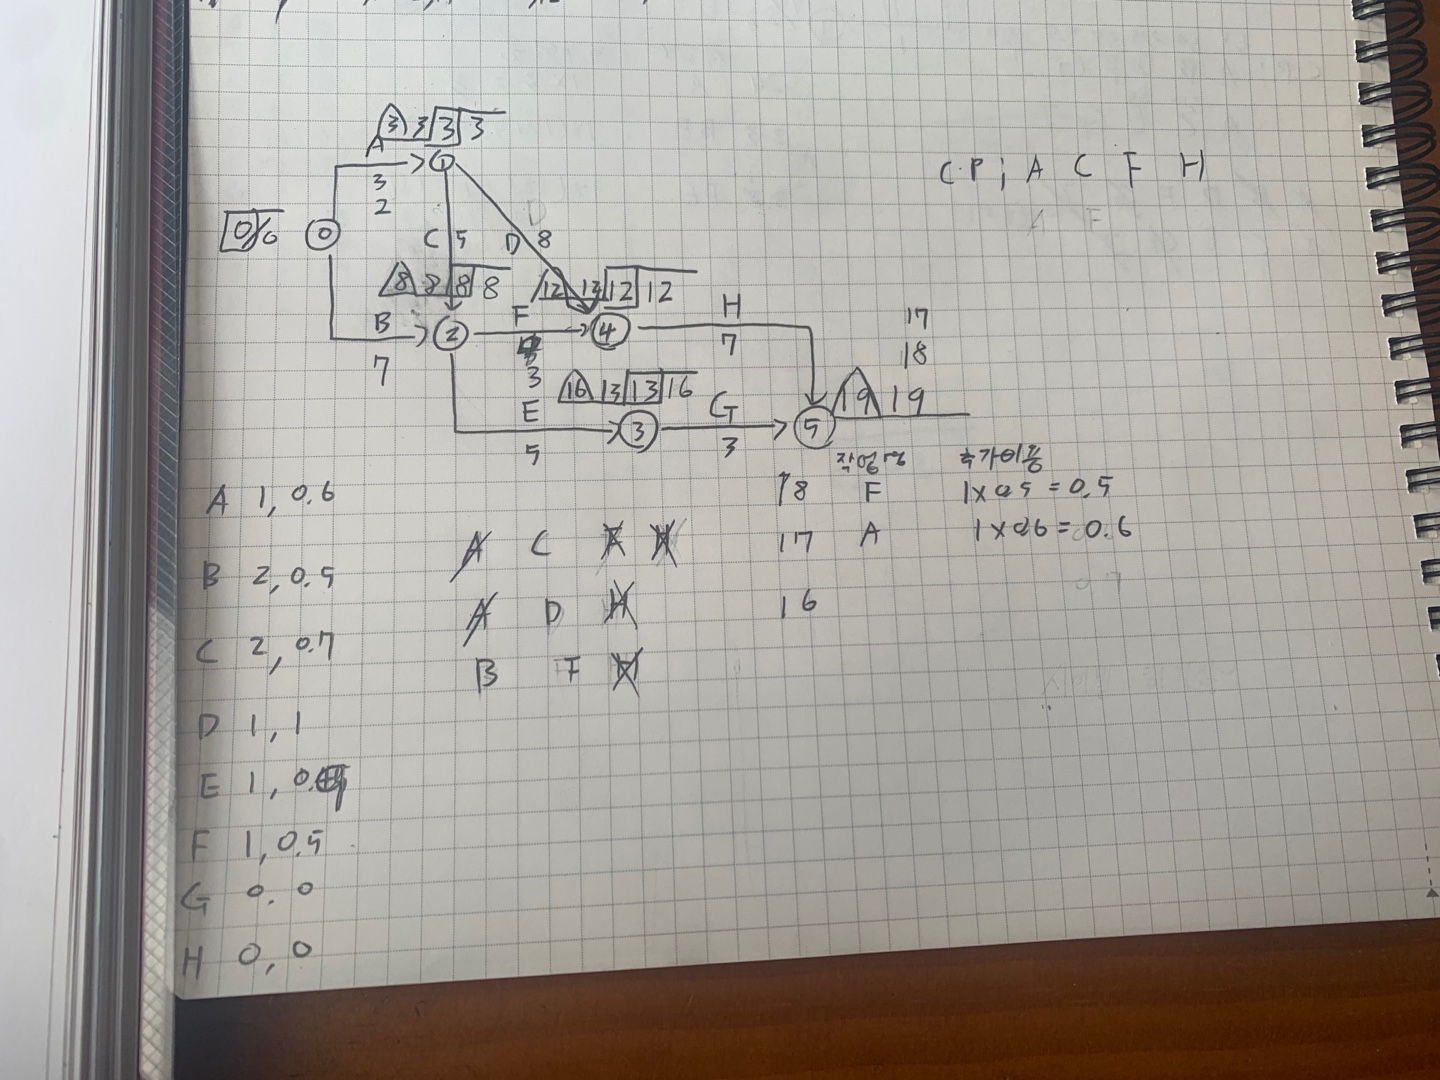 3 3 3 3
A
1
3
2
C.P; A C F H
0 6 0
C 5 D 8
8 8 8 8
12 12 12 12
B
7
2
F
3
4
H
7
17
18
16 13 13 16
E
5
3
G
3
5
19 19
작업명 추가비용
18 F 1x0.5 = 0.5
17 A 1x0.6 = 0.6
16
A 1, 0.6
B 2, 0.5
C 2, 0.7
D 1, 1
E 1,
F 1, 0.5
G 0. 0
H 0, 0
A C
A D H
B F H